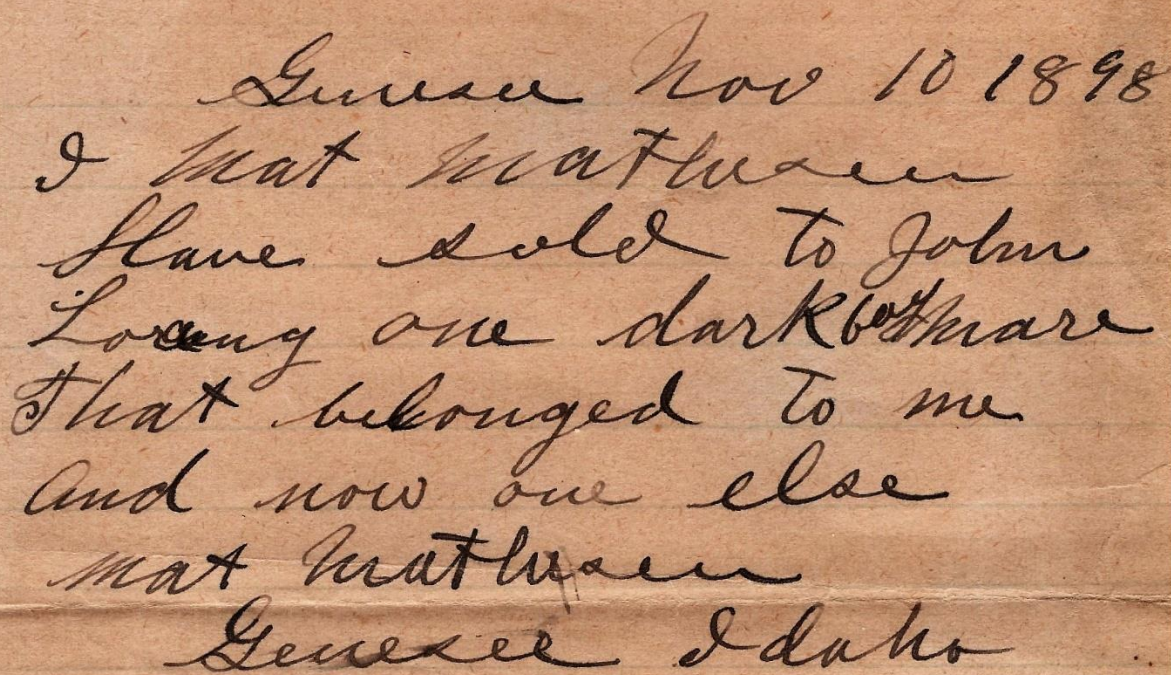 Genesee Nov 10 1898
I Mat Mathesen
Have sold to John
one dark bay mare
That belonged to me
and now one else
mat Mathesen
Genesee Idaho